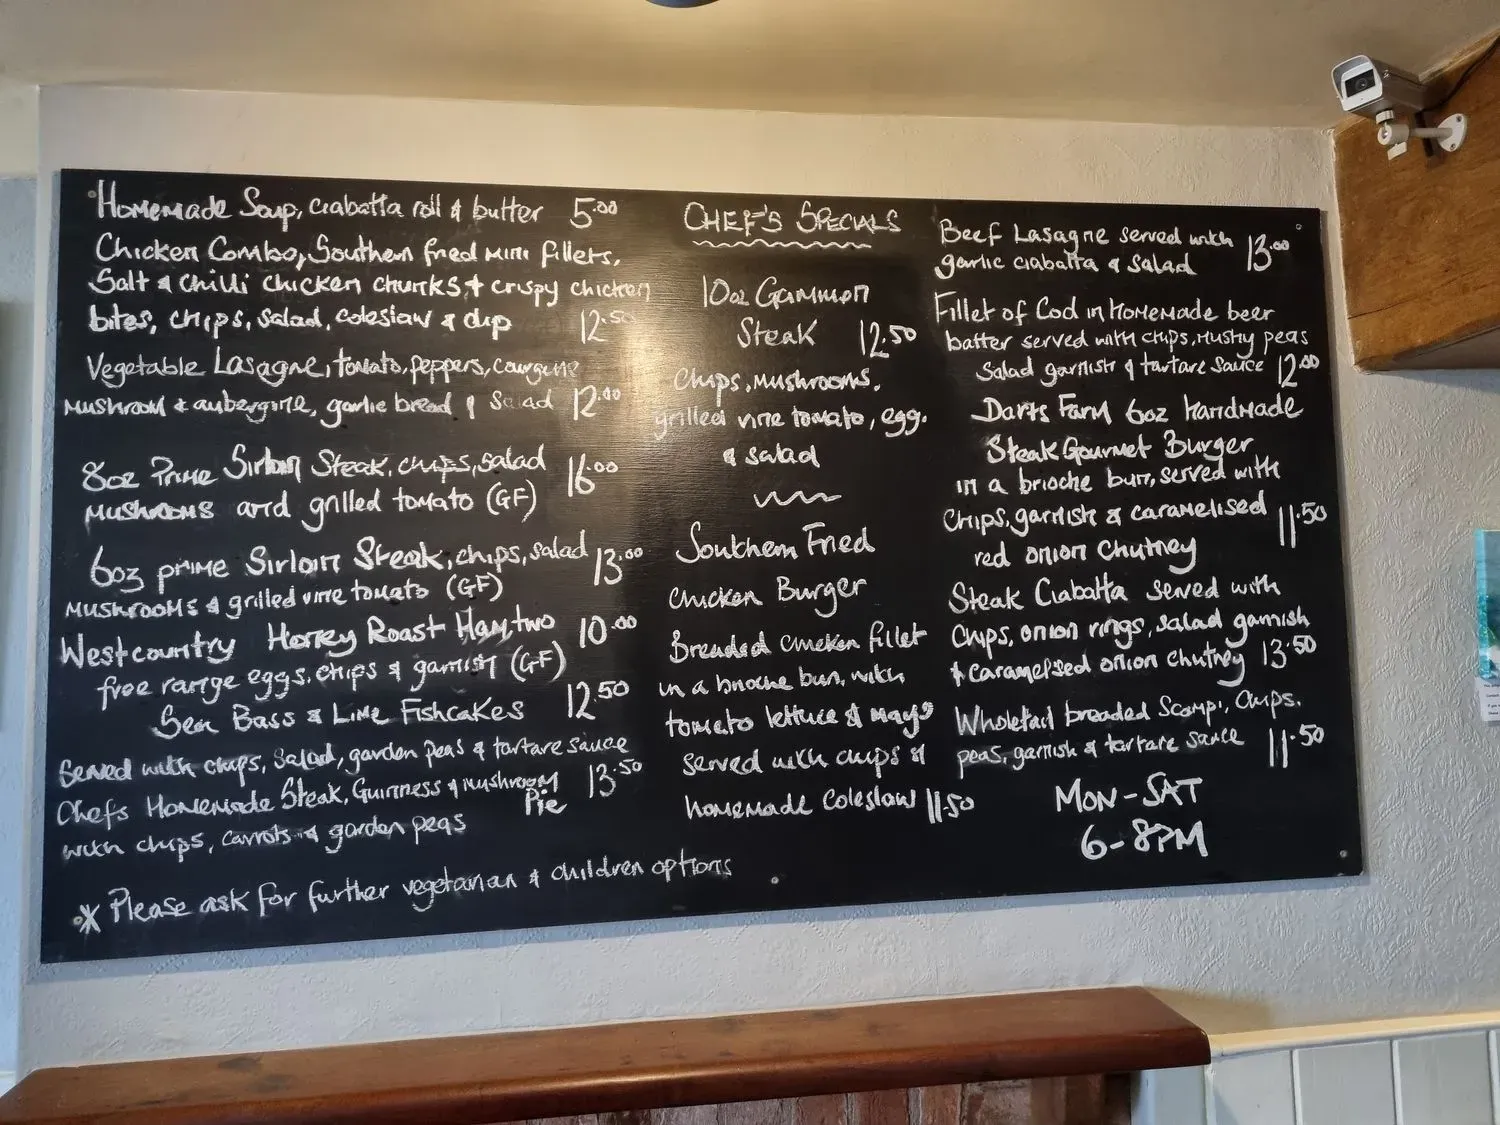 Homemade Soup, ciabatta roll & butter 5.00
Chicken Combo, Southern fried mini fillets,
Salt & Chilli chicken chunks & crispy chicken
bites, chips, salad, coleslaw & dip 12.50
Vegetable Lasagne, tomato, peppers, courgette
mushroom & aubergine, garlic bread & salad 12.00
8oz Prime Sirloin Steak, chips, salad 16.00
mushrooms and grilled tomato (GF)
6oz prime Sirloin Steak, chips, salad 13.00
mushrooms & grilled vine tomato (GF)
Westcountry Honey Roast Ham, two 10.00
free range eggs, chips & garnish (GF)
Sea Bass & Lime Fishcakes 12.50
Served with chips, Salad, garden peas & tartare sauce
Chefs Homemade Steak, Guinness & mushroom Pie 13.50
with chips, carrots & garden peas
* Please ask for further vegetarian & children options
CHEF'S SPECIALS
10oz Gammon
Steak 12.50
Chips, mushrooms,
grilled vine tomato, egg,
& salad
Southern Fried
Chicken Burger
Breaded chicken fillet
in a brioche bun, with
tomato lettuce & mayo
served with chips &
homemade Coleslaw 11.50
Beef Lasagne served with 13.00
garlic ciabatta & salad
Fillet of Cod in Homemade beer
batter served with chips, mushy peas
Salad garnish & tartare sauce 12.00
Darts Farm 6oz handmade
Steak Gourmet Burger
in a brioche bun, served with
Chips, garnish & caramelised 11.50
red onion chutney
Steak Ciabatta served with
chips, onion rings, salad garnish
& caramelised onion chutney 13.50
Wholetail breaded Scampi, Chips,
peas, garnish & tartare sauce 11.50
MON-SAT
6-8PM